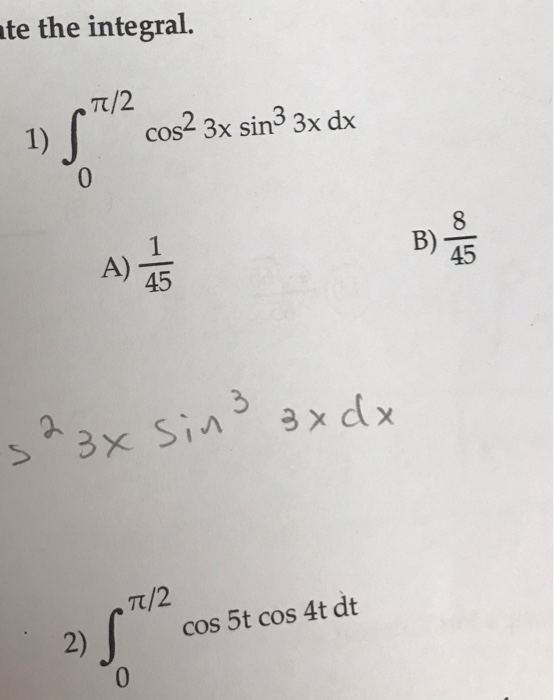 ate the integral.
1) ∫₀^π/2 cos² 3x sin³ 3x dx
A) 1/45 B) 8/45
s² 3x sin³ 3x dx
2) ∫₀^π/2 cos 5t cos 4t dt